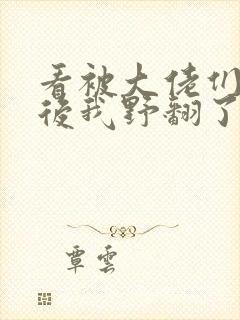 看被大佬们
后我野翻了
覃云